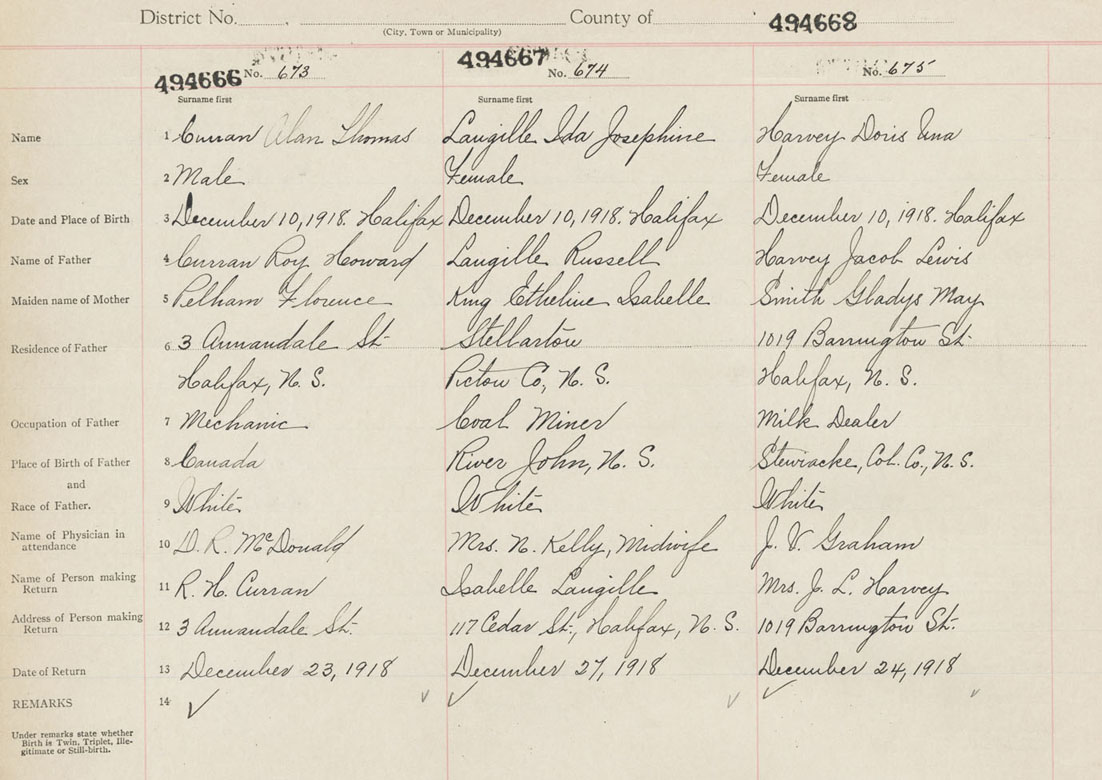 District No. County of 494668
(City, Town or Municipality)
494666 No. 673 494667 No. 674 No. 675
Surname first Surname first Surname first
Name 1 Curran Alan Thomas Langille Ida Josephine Harvey Doris Una
Sex 2 Male Female Female
Date and Place of Birth 3 December 10, 1918. Halifax December 10, 1918. Halifax December 10, 1918. Halifax
Name of Father 4 Curran Roy Howard Langille Russell Harvey Jacob Lewis
Maiden name of Mother 5 Pelham Florence King Etheline Isabelle Smith Gladys May
Residence of Father 6 3 Annandale St. Stellarton 1019 Barrington St.
Halifax, N. S. Pictou Co, N. S. Halifax, N. S.
Occupation of Father 7 Mechanic Coal Miner Milk Dealer
Place of Birth of Father 8 Canada River John, N. S. Stewiacke, Col. Co., N. S.
and
Race of Father. 9 White White White
Name of Physician in
attendance 10 D. R. McDonald Mrs. N. Kelly, Midwife J. V. Graham
Name of Person making
Return 11 R. H. Curran Isabelle Langille Mrs. J. L. Harvey
Address of Person making
Return 12 3 Annandale St. 117 Cedar St., Halifax, N. S. 1019 Barrington St.
Date of Return 13 December 23, 1918 December 27, 1918 December 24, 1918
REMARKS 14
Under remarks state whether
Birth is Twin, Triplet, Ille-
gitimate or Still-birth.